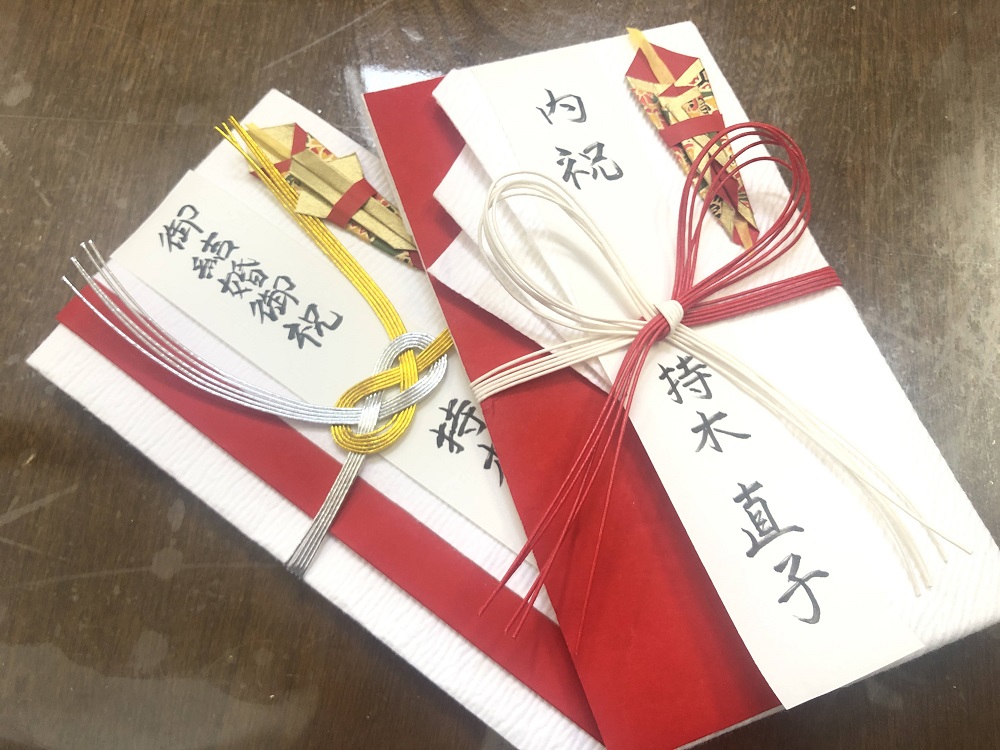 御結婚御祝
持
内祝
持木 直子